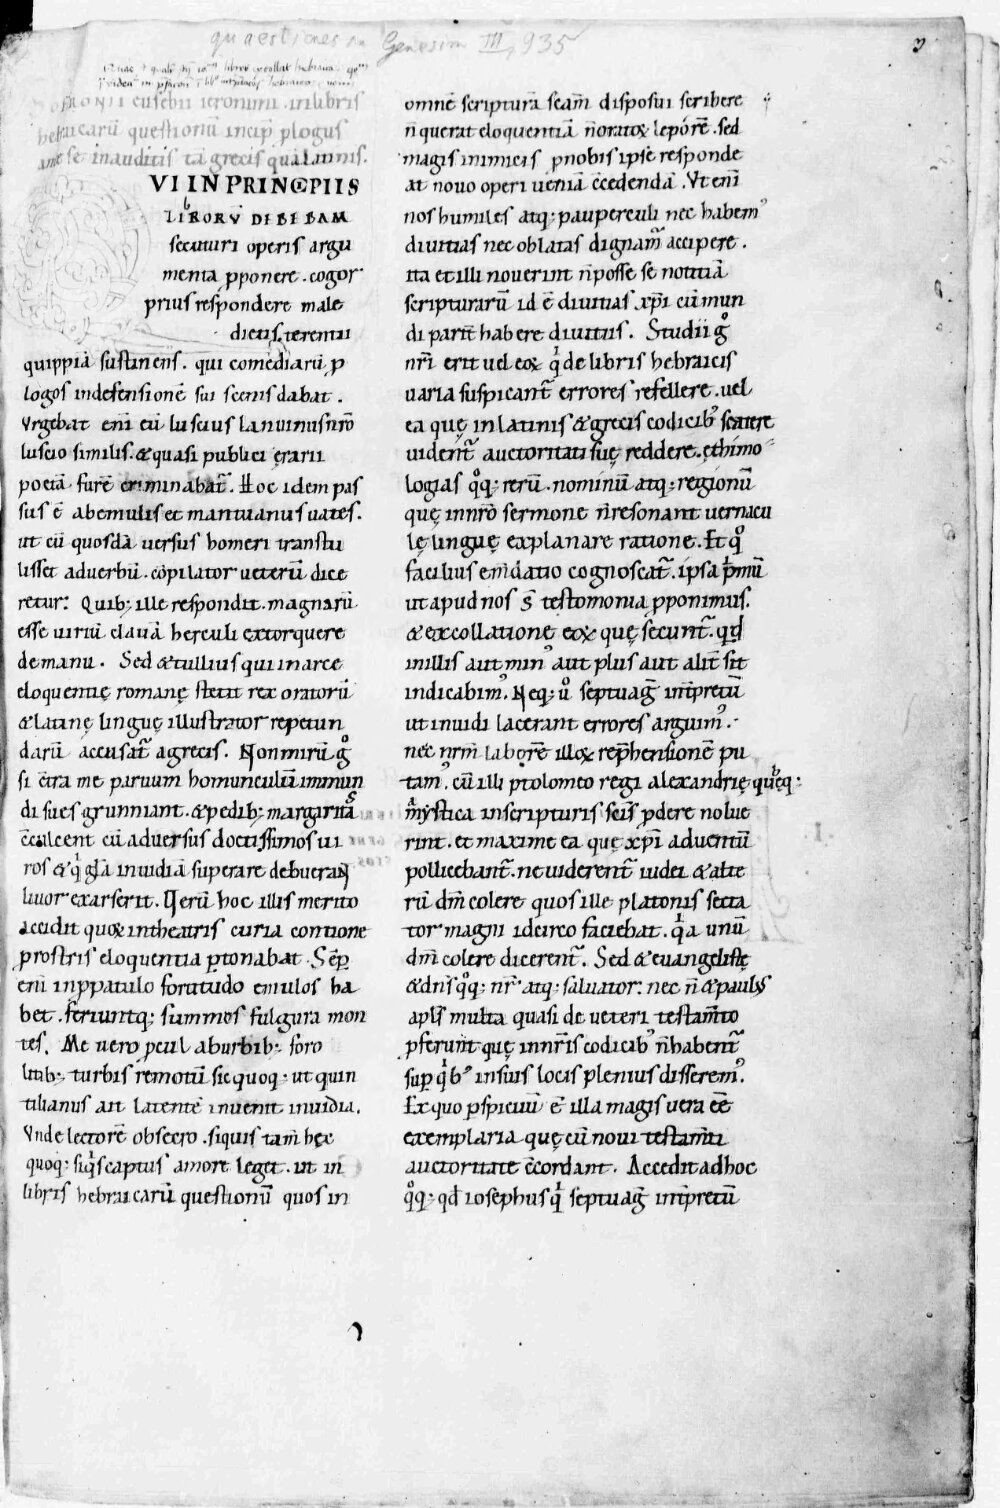 quaestiones in Genesim III, 935
eusebii ieronimi . in libris
hebraicarū questionū incip̄ p̱logus
se inauditis tā grecis quā latinis.
VI IN PRINCIPIIS
LIBORV̄ DEBEBAM
secuturi operis argu
menta p̱ponere . cogor
prius respondere male
dictis . terentii
quippiā sustinens . qui comediarū p̱
logos in defensionē sui scenis dabat .
Vrgebat eni eū luscius lanuinus nr̄o
luscio similis . & quasi publici ęrarii
poetā furē criminabat᷑ . Hoc idem pas
sus ē ab emulis et mantuanus uates .
ut cū quosdā uersus homeri transtu
lisset ad uerbū . cōpilator ueterū dice
retur . Quib; ille respondit . magnarū
esse uiriū clauā herculi extorquere
de manu . Sed & tullius qui in arce
eloquentię romanę stetit rex oratorū
& latinę linguę illustrator repetun
darū accusat᷑ a grecis . Non mirū gͦ
si cōtra me paruum homunculum inmun
di sues grunniant . & pedib; margaritas
cōculcent cū aduersus doctissimos ui
ros & qͥ gl̄a inuidiā superare debuerant
liuor exarserit . Uerū hoc illis merito
accidit quoꝝ in theatris curia contione
p̱ rostris eloquentia ꝑtonabat . Sēꝑ
eni in p̱patulo fortitudo emulos ha
bet . feriuntq; summos fulgura mon
tes . Me uero p̱cul ab urbib; foro
litib; turbis remotū sic quoq; ut quin
tilianus ait latentē inuenit inuidia .
Vnde lectorē obsecro . siquis tam̄ hęc
quoq; siqͥs captus amore leget . ut in
libris hebraicarū questionū quos in
omnē scripturā scām disposui scribere
n̄ querat eloquentiā n̄ oratoꝝ leporē . sed
magis inimicis p̱ nobis ipse responde
at nouo operi ueniā cc̄edendā . Vt eni
nos humiles atq; pauperculi nec habemꝰ
diuitias nec oblatas dignam᷑ accipere .
ita et illi nouerint n̄ posse se notitiā
scripturarū id ē diuitias xp̄i cū mun
di parit̄ habere diuitiis . Studii gͦ
nr̄i erit uel eoꝝ qͥ de libris hebraicis
uaria suspicant᷑ errores refellere . uel
ea quę in latinis & grecis codicibꝰ scatere
uident᷑ auctoritati suę reddere . ęthimo
logias qͦq; rerū . nominū atq; regionū
quę in nr̄o sermone n̄ resonant uernacu
lę linguę explanare ratione . Et qͦ
facilius em̄datio cognoscat᷑ . ipsa pͥmū
ut apud nos s̄ testomonia p̱ponimus .
& ex collatione eoꝝ quę secunt᷑ . qd̄
in illis aut minꝰ aut plus aut alit̄ sit
indicabimꝰ . Neq; uͦ septuaḡ int̄pretū
ut inuidi lacerant errores arguimꝰ .
nec nr̄m laborē illoꝝ rep̄hensionē pu
tamꝰ . cū illi ptolomeo regi alexandrię quęq;
mystica in scripturis scīs p̱dere nolue
rint . et maxime ea quę xp̄i aduentū
pollicebant᷑ . ne uiderent᷑ iudei & alte
rū dm̄ colere quos ille platonis secta
tor magni idcirco faciebat . qͥa unū
dm̄ colere dicerent᷑ . Sed & euangelistę
& dn̄s qͦq; nr̄ atq; saluator . nec n̄ & paulus
apl̄s multa quasi de ueteri testam̄to
p̱ferunt quę in nr̄is codicibꝰ n̄ habent᷑
suꝑ qͥbꝰ in suis locis plenius disseremꝰ .
Ex quo ꝑspicuū ē illa magis uera eē
exemplaria quę cū noui testam̄ti
auctoritate cc̄ordant . Accedit ad hoc
qͦq; qd̄ iosephus qͥ septuaḡ int̄pretū